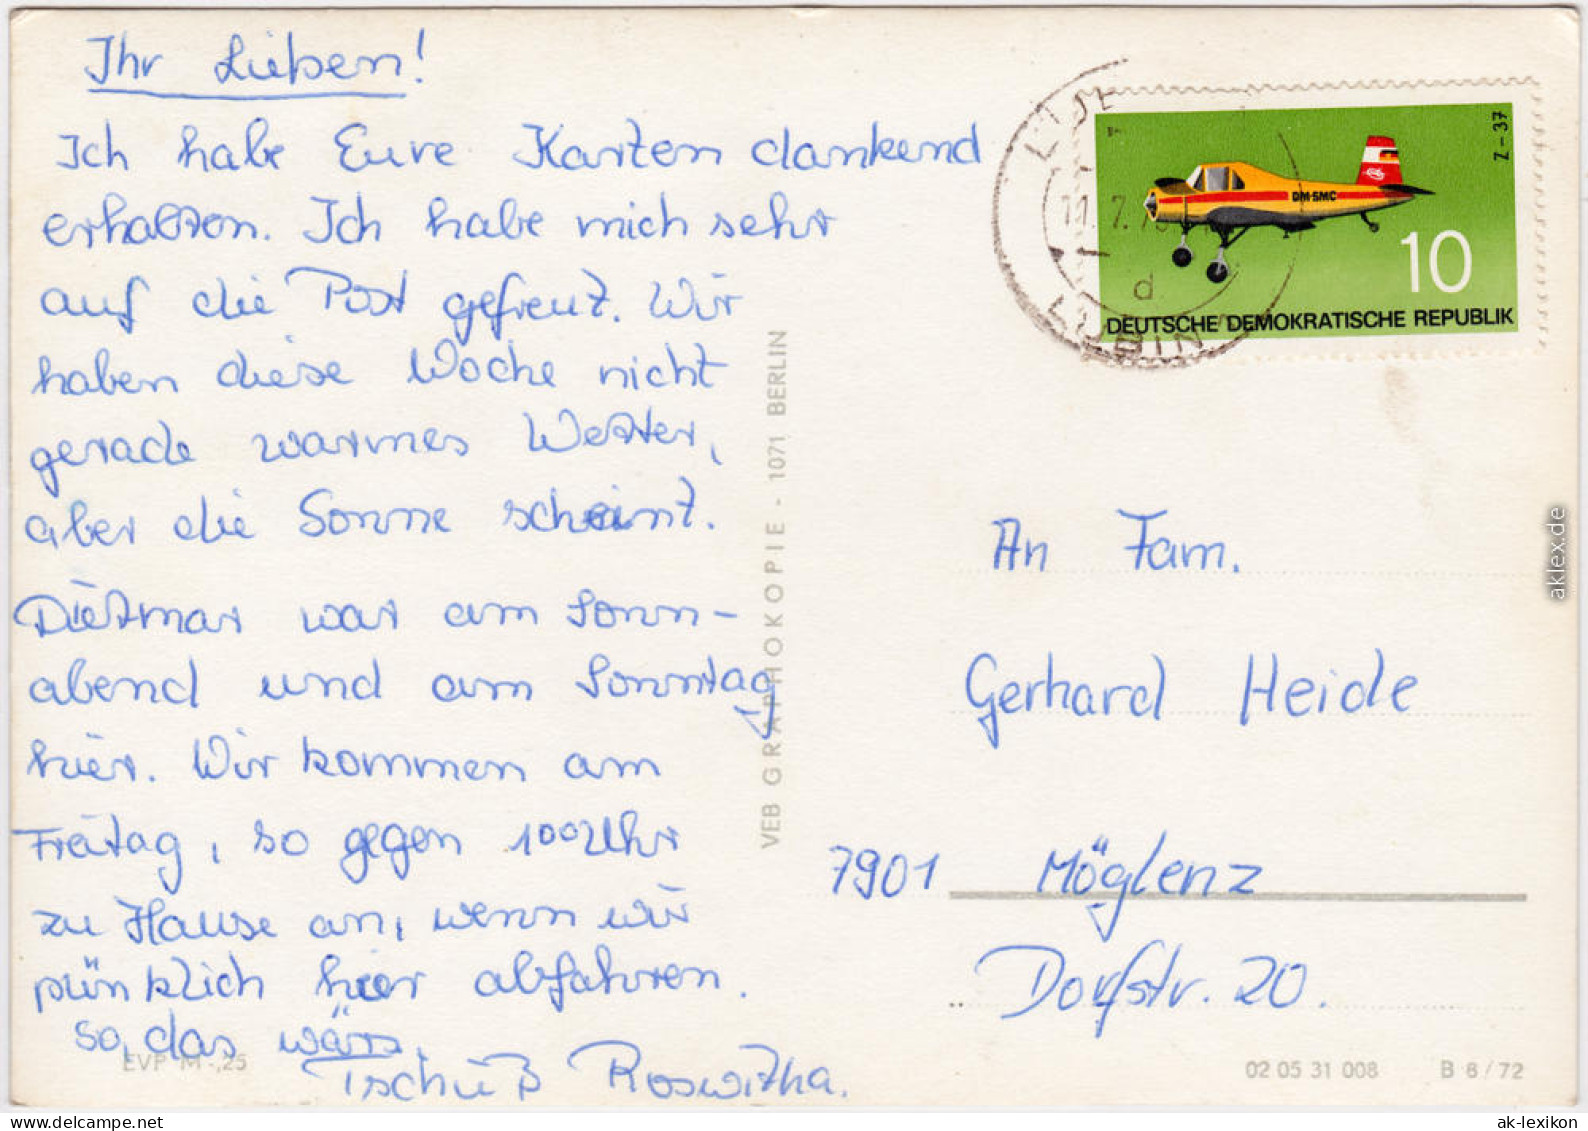 Ihr Lieben!
Ich habe Eure Karten dankend
erhalten. Ich habe mich sehr
auf die Post gefreut. Wir
haben diese Woche nicht
gerade warmes Wetter,
aber die Sonne scheint.
Dietmar war am Sonn-
abend und am Sonntag
hier. Wir kommen am
Freitag, so gegen 100 Uhr
zu Hause an, wenn wir
pünktlich hier abfahren.
So, das wärs.
Tschüß Roswitha.
EVP M -,25
VEB GRAPHOKOPIE - 1071 BERLIN
Z-37
DM-SMC
10
DEUTSCHE DEMOKRATISCHE REPUBLIK
11.7.
d
An Fam.
Gerhard Heide
7901 Möglenz
Dorfstr. 20.
02 05 31 008 B 6/72
aklex.de
ak-lexikon